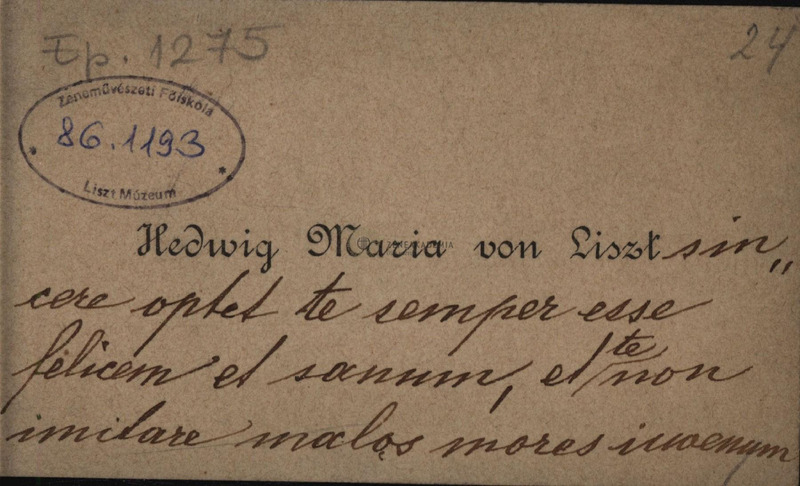 Ep. 1275
24
Zeneművészeti Főiskola
86.1193
Liszt Múzeum
Hedwig Maria von Liszt sin„
cere optet te semper esse
felicem et sanum, et te non
imitare malos mores iuvenum